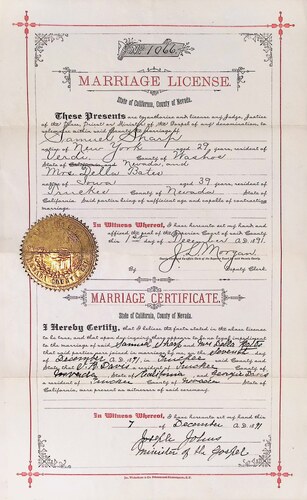 No. 1066
MARRIAGE LICENSE.
State of California, County of Nevada.
These Presents are to authorize and license any Judge, Justice
of the Peace, Priest or Minister of the Gospel of any denomination, to
solemnize within said County the marriage of
Samuel Sharp
native of New York aged 29 years, resident of
Verdi County of Washoe
State of Nevada, and
Mrs Della Bates
native of Iowa aged 39 years, resident of
Truckee County of Nevada
State of California. Said parties being of sufficient age and capable of contracting
marriage.
In Witness Whereof, I have hereunto set my hand and
affixed the seal of the Superior Court of said County
this 1st day of December A.D. 1891.
J. L. Morgan
By Deputy Clerk
MARRIAGE CERTIFICATE.
State of California, County of Nevada.
I Hereby Certify, that I believe the facts stated in the above license
to be true, and that upon due inquiry there appears to be no legal impediment
to the marriage of said Samuel Sharp and Mrs Della Bates
that said parties were joined in marriage by me on the Seventh
day of December A.D. 1891, in Truckee said County and
State; that Davis a resident of Truckee
County of Nevada State of California and Davis
a resident of Truckee County of Nevada State of
California, were present as witnesses of said ceremony.
In Witness Whereof, I have hereunto set my hand this
7 day of December A.D. 1891
Joseph Johns
Minister of the Gospel